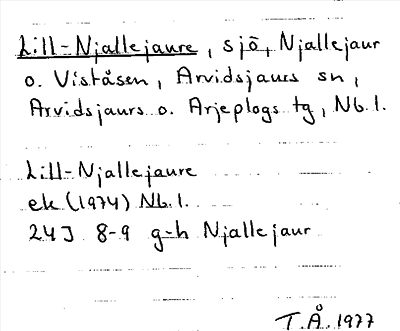 Lill-Njallejaure, sjö, Njallejaur
o. Viståsen, Arvidsjaurs sn,
Arvidsjaurs o. Arjeplogs tg, Nb.l.
Lill-Njallejaure
ek (1974) Nb.l.
24J 8-9 g-h Njallejaur
T.Å. 1977